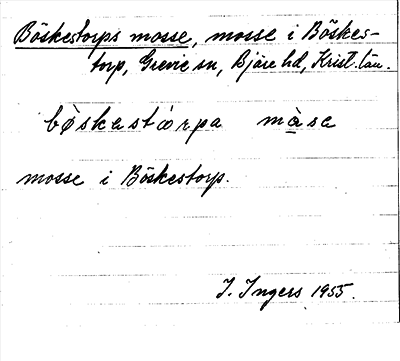 Böskestorps mosse, mosse i Böskes-
torp, Grevie sn, Bjäre hd, Krist. län.
bø̀skastɔrpa mɑ̀sa
mosse i Böskestorp.
I. Ingers 1955.